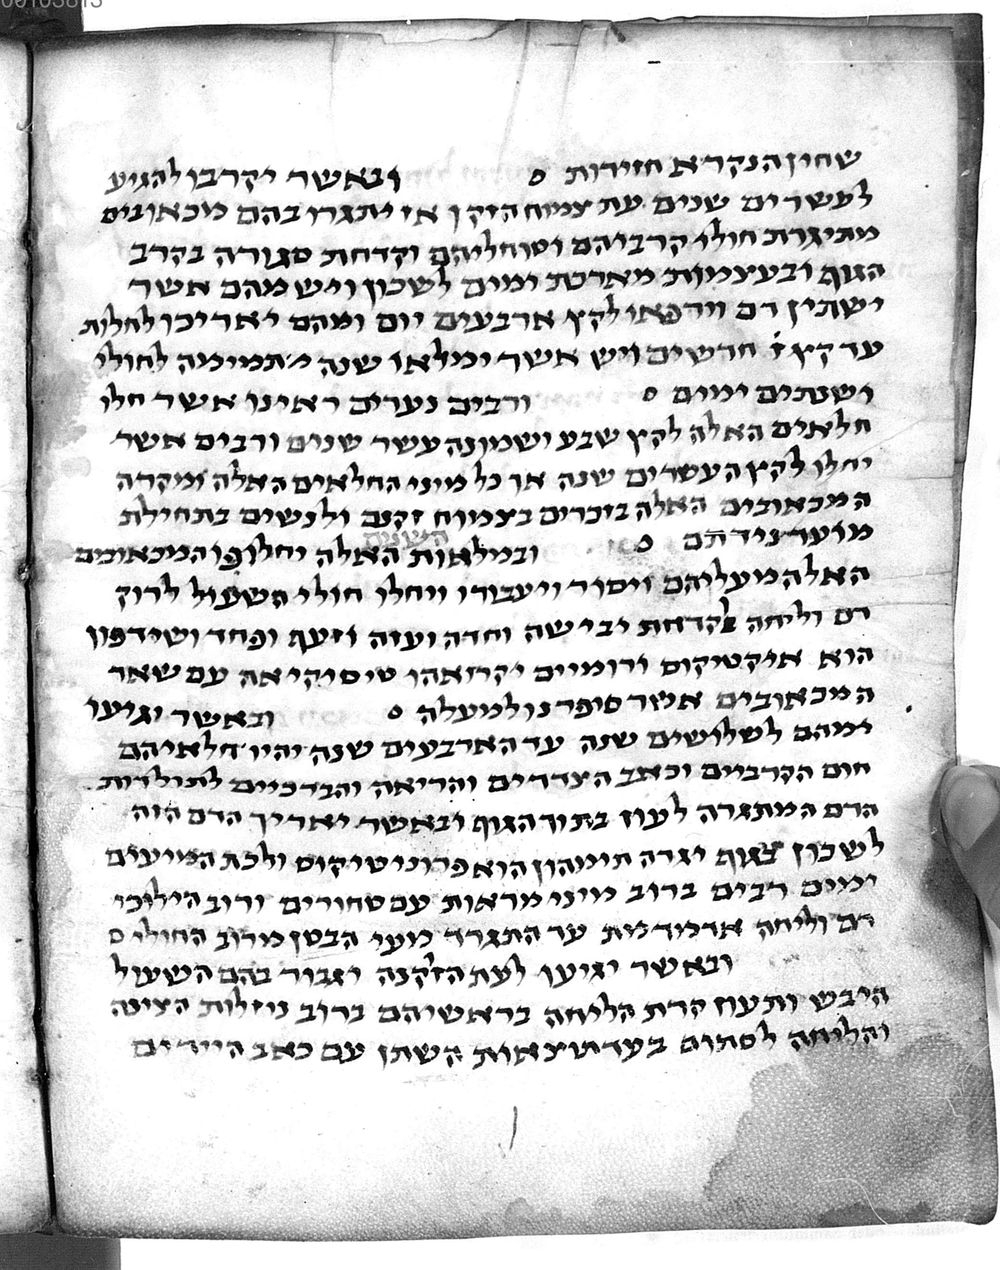 שחין הנקרא חזירות ס ובאשר יקרבו להגיע
לעשרים שנים עת צמוח הזקן אז יתגרו בהם מכאובים
מתיגרת חולי קרביהם וטוחליהם וקדחת סגורה בקרב
הגוף ובעצמות מארכת ימים לשכון ויש מהם אשר
ישתין דם וירפאו לקץ ארבעים יום ומהם יאריכו לחלות
עד קץ ז׳ חדשים ויש אשר ימלאו שנה תמימה לחולי
ושנתים ימים ס ורבים נערים ראינו אשר חלו
חלאים האלה לקץ שבע ושמונה עשר שנים ורבים אשר
יחלו לקץ העשרים שנה אך כל מיני החלאים האלה ומקרה
המכאובים האלה בזכרים בצמוח זקנם ולנשים בתחילת
מועד נידתם ס ובמלאות השנים האלה יחלופו המכאובים
האלה מעליהם ויסור ויעבורו ויחלו חולי השעול לרוק
דם וליחה לקדחת יבישה וחדה ועזה וזעף ופחד ושידפון
הוא אוקטיקוס ורומיים יקרואהו טיסיקיאה עם שאר
המכאובים אשר סופרנו למעלה ס ובאשר יגיעו
ימיהם לשלושים שנה עד הארבעים שנה יהיו חלאיהם
חום הקרביים וכאב הצדדים והריאה והברכיים לתולדות
הדם המתגרה לעוז בתוך הגוף ובאשר יאריך הדם הזה
לשכון בגוף יגרה תימהון הוא פרוניטיקוס ולכת המיעים
ימים רבים ברוב מיני מראות עם טחורים ורוב הילוכי
דם וליחה אדמדמת עד התגרד מעי הבטן מרוב החולי ס
ובאשר יגיעו לעת הזקנה יגבור בהם השעול
היבש ותעוז קרת הליחה בראשיהם ברוב ניזלות הצינה
והליחה לסתום בעד תוצאות השתן עם כאב הידים